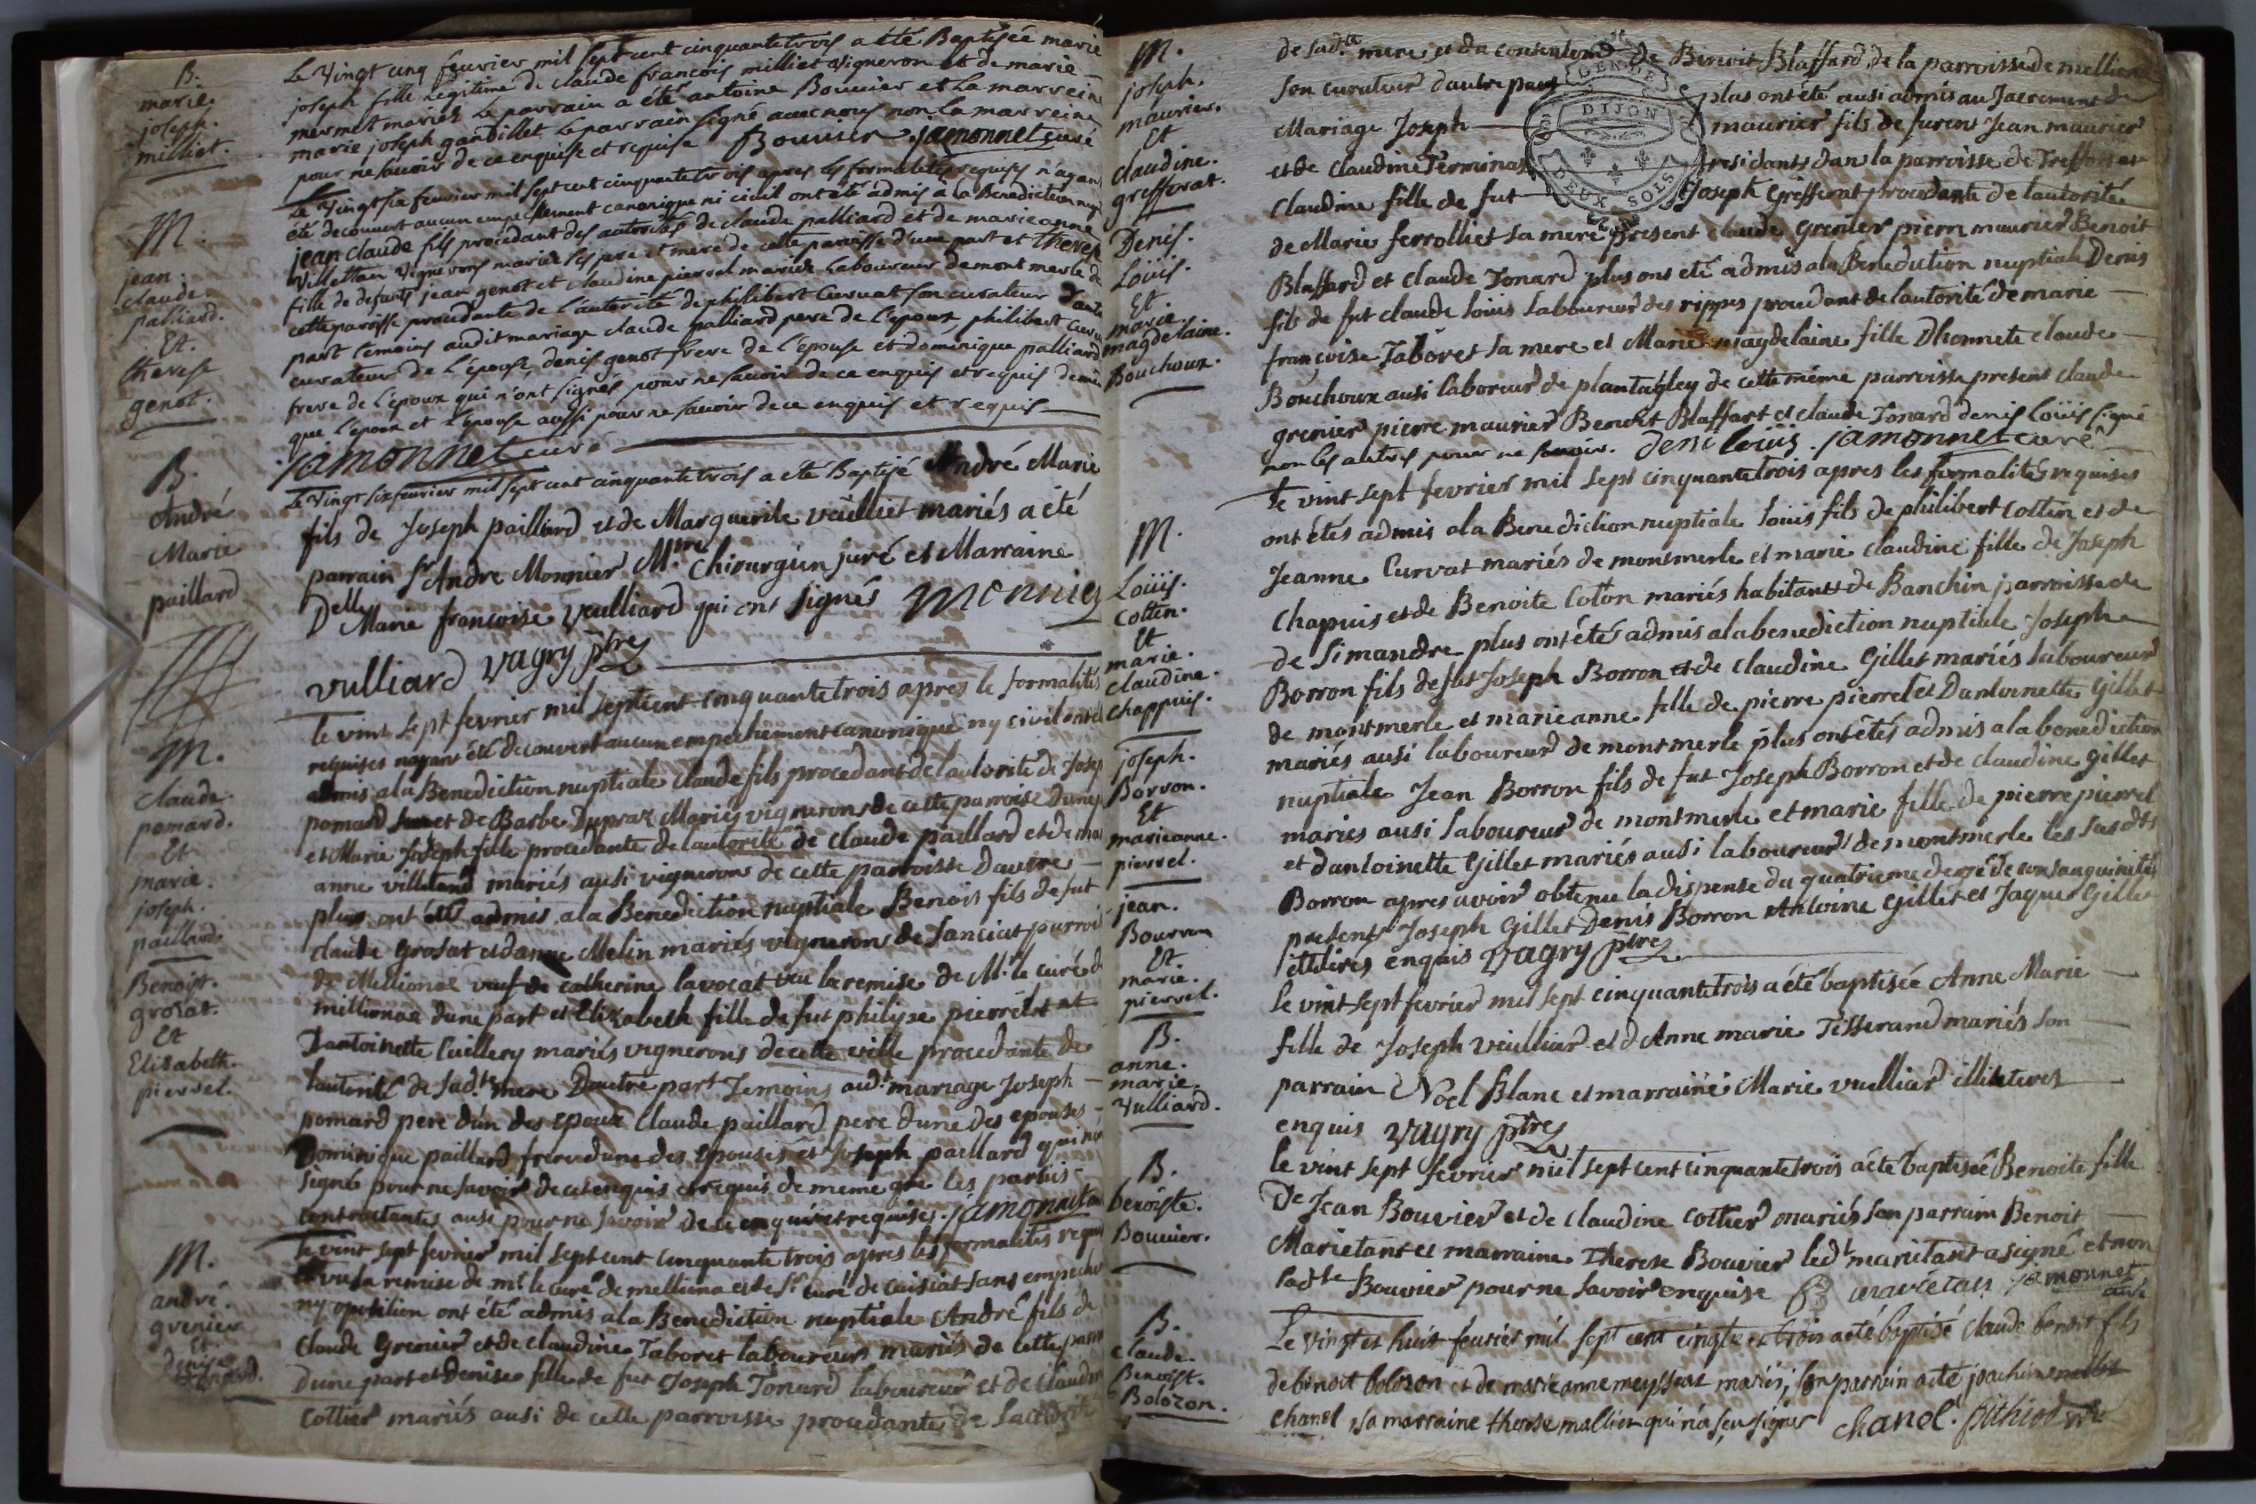 B.
marie.
joseph.
milliet.
Le Vingt cinq feuvrier mil sept cent cinquante trois a été Baptisée marie
joseph fille Legitime de claude françois milliet vigneron et de marie
mermet mariés Le parrain a été antoine Bouvier et La marreine
marie joseph gandillet Le parrain signé avec nous non La marreine
pour ne savoir de ce enquise et requise Bouvier jamonnet curé
M.
jean.
claude
palliard.
Et.
therese
genot.
Le Vingt six feuvrier mil sept cent cinquante trois apres les formalités requises n'ayant
été decouvert aucun empechement canonique ni civil ont été admis à la Benediction
jean claude fils procedant des autorités de claude palliard et de marieanne
Villettan vignerons mariés ses pere et mere de cette paroisse d'une part et Therese
fille de defunts jean genot et claudine pierrel mariés Laboureur de montmerle de
cette paroisse procedante de l'autorité de philibert Curvat son curateur d'autre
part temoins audit mariage claude palliard pere de l'epoux, philibert Curvat
curateur de l'épouse, denis genot frere de l'épouse et dominique palliard
frere de l'epoux qui n'ont signés pour ne savoir de ce enquis et requis de même
que l'epoux et l'epouse aussi pour ne savoir de ce enquis et requis
jamonnet curé
B.
André
Marie
paillard
Le Vingt six feuvrier mil sept cent cinquante trois a été Baptisé André Marie
fils de Joseph paillard et de Marguerite veulliet mariés a été
parrain Sr André Monnier Mtre Chirurgien juré et Marraine
Delle Marie françoise Veulliard qui ont signés Monnier
vulliard vagry ptre
M.
claude.
pomard.
Et
marie.
joseph.
paillard.
Benoist.
grosat.
Et
Elisabeth.
pierrel.
Le vint sept fevrier mil septcent cinquante trois apres le formalités
requises nayant été decouvert aucun empechement canonique ny civil ont été
admis a la Benediction nuptiale claude fils procedant de l'autorité de Joseph
pomard et de Barbe Dupraz Mariés vignerons de cette paroisse Dune part
et Marie Joseph fille procedante de l'autorité de claude paillard et de marie
anne villetand mariés ausi vignerons de cette parroisse Dautre
plus ont été admis a la Benediction nuptiale Benois fils de fut
claude Grosat et danne Melin mariés vignerons de Sanciat parrois
de Millionas veuf de catherine lavocat vu la remise de Mr le curé de
millionaz dune part et Elizabeth fille de fut philipe pierrelet et
Dantoinette Cuillery mariés vignerons de cette ville procedante de
lautorité de sadte mere Dautre part Temoins audt mariage Joseph
pomard pere d'un des epoux Claude paillard pere dune des epouses
Dominique paillard frere dune des epouses et Joseph paillard qui n'ont
signé pour ne savoir de ce enquis et requis de meme que les parties
contractantes ausi pour ne savoir de ce enquises et requises. jamonnet curé
M.
andré.
grenier
Et.
denise
Tonard.
le vint sept fevrier mil sept cent cinquante trois apres les formalités requises
et vu la remise de mr le curé de melliona et de Sr curé de cuisiat sans empeche
ny oposition ont été admis a la Benediction nuptiale André fils de
Claude Grenier et de claudine Taboret laboureurs mariés de cette paroisse
Dune part et denise fille de fut Joseph Tonard laboureur et de claudine
Cottier mariés ausi de cette parroisse procedante de Lautorité
M.
joseph.
maurier.
Et
claudine.
grefferat.
Denis.
Loüis.
Et
marie.
magdelaine.
Bouchoux.
de sadte mere et du consentement de Benoit Blaffard de la parroisse de melliona
son curateur dautre part plus ont été ausi admis au Sacrement de
Mariage Joseph maurier fils de furent Jean maurier
et de Claudine Perminas residants dans la parroisse de Treffort et
Claudine fille de fut Joseph Grefferat procedante de l'autorité
de Marie ferrolliet sa mere present claude grenier pierre maurier Benoit
Blaffard et claude Tonard plus ont été admis a la Benediction nuptiale Denis
fils de fut claude loüis laboureur des rippes procedant de lautorité de marie
françoise Taboret sa mere et Marie magdelaine fille Dhonnete claude
Bouchoux ausi laboreur de plantagley de cette méme parroisse present claude
grenier pierre maurier Benoit Blaffart et claude Tonard denis Loüis signé
non les autres pour ne savoir. deni loüis. jamonnet curé
GENE DE
DIJON
DEUX SOLS
M.
Loüis.
Cotten.
Et
marie.
claudine.
chappuis.
joseph.
Borron.
Et
marieanne.
pierrel.
jean.
Bourron
Et
marie.
pierrel.
Le vint sept fevrier mil sept cinquante trois apres les formalités requises
ont étés admis a la Benediction nuptiale loüis fils de philibert Cotten et de
Jeanne Curvat mariés de montmerle et marie claudine fille de Joseph
Chapuis et de Benoite Coton mariés habitants de Banchin parroisse de
de Simandre plus ont étés admis a la benediction nuptiale Joseph
Borron fils de fut Joseph Borron et de Claudine Gillet mariés laboureur
de montmerle et marieanne fille de pierre pierrel et Dantoinette Gillet
mariés ausi laboureur de montmerle plus ont étés admis a la benediction
nuptiale Jean Borron fils de fut Joseph Borron et de claudine gillet
mariés ausi laboureur de montmerle et marie fille de pierre pierrel
et dantoinette Gillet mariés ausi laboureur de montmerle les susdts
Borron apres avoir obtenu la dispense du quatrieme degré de consanguinité
presents Joseph Gillet Denis Borron Antoine Gillet et Jaques Gillet
illiteres enquis vagry ptre
B.
anne.
marie.
Vulliard.
le vint sept fevrier mil sept cinquante trois a été baptisée Anne Marie
fille de Joseph veulliard et dAnne marie Tisserand mariés son
parrain Noel Blanc et marraine Marie vuelliard illiteres
enquis vagry ptre
B.
benoiste.
Bouvier.
le vint sept fevrier mil sept cent cinquante trois a été baptisée Benoite fille
De Jean Bouvier et de claudine Cottier mariés son parrain Benoit
Marietant et marraine Therese Bouvier ledt marietant a signé et non
ladte Bouvier pour ne savoir enquise B marietan jamonnet
curé
B.
claude.
Benoist.
Bolozon.
Le Vingt et huit feuvrier mil sept cent cinqte et trois a été baptisé Claude benoit fils
de benoit bolozon et de marieanne meyssiat mariés, son parrain a été joachim
chanel sa marraine therese mallier qui n'a sçeu signer chanel. pithiod vic